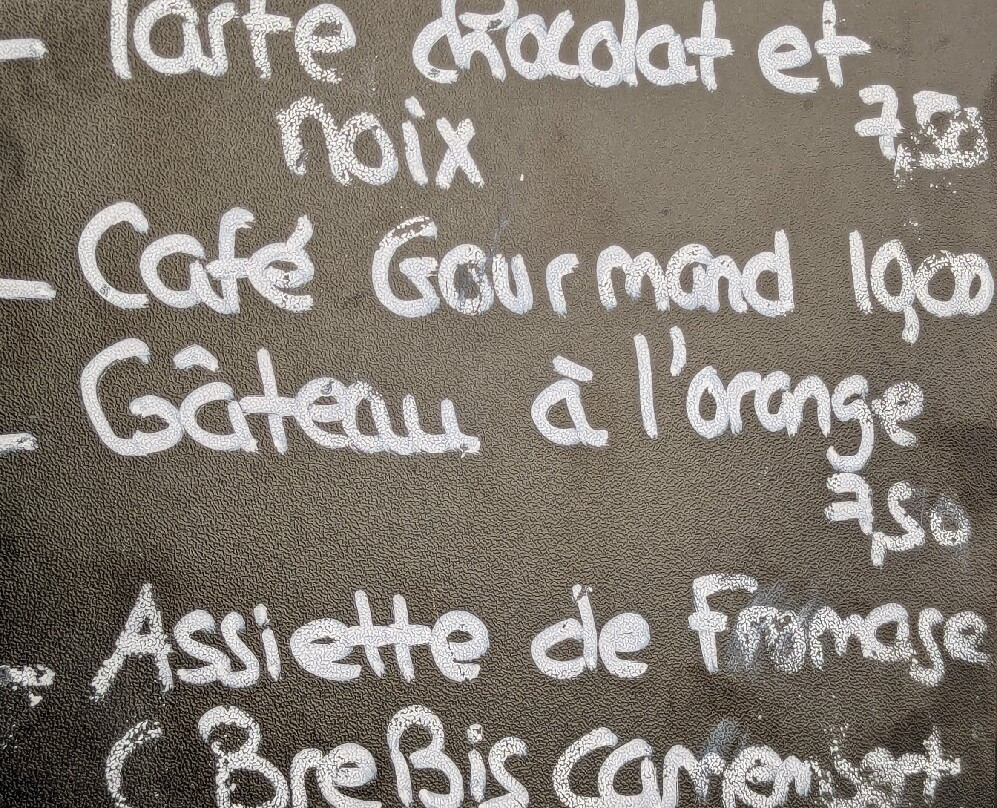 - Tarte chocolat et
noix 7,50
- Café Gourmand 19,00
Gâteau à l'orange
7,50
- Assiette de Fromage
( BreBis camembert